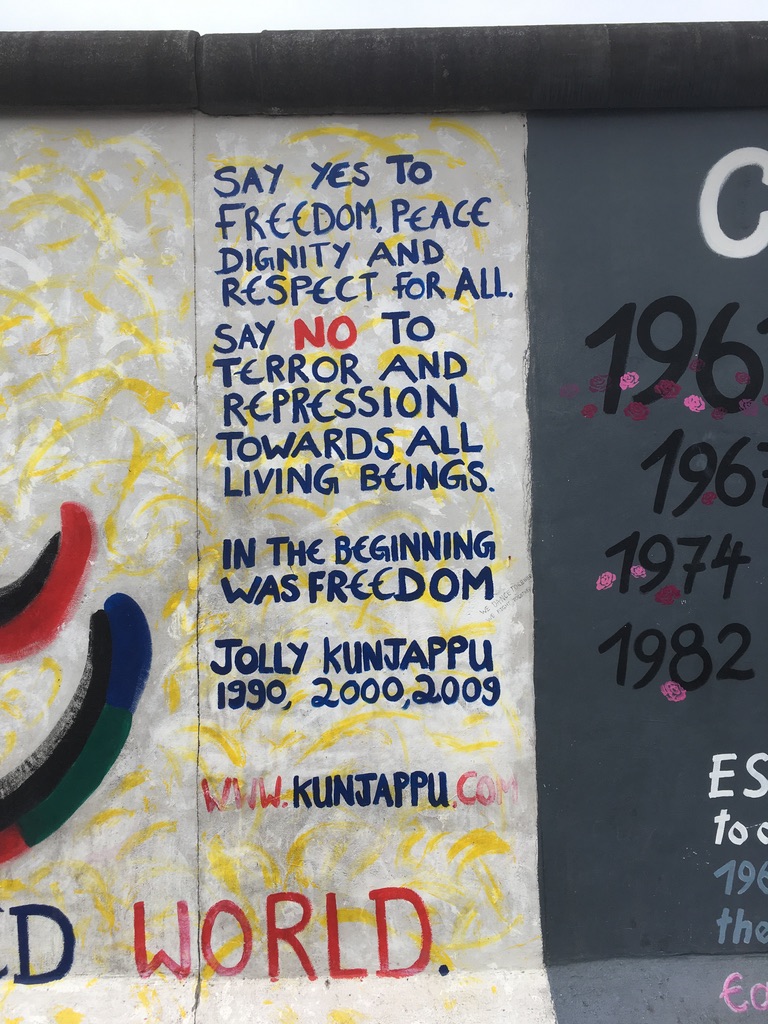 SAY YES TO
FREEDOM, PEACE
DIGNITY AND
RESPECT FOR ALL.
SAY NO TO
TERROR AND
REPRESSION
TOWARDS ALL
LIVING BEINGS.
IN THE BEGINNING
WAS FREEDOM
JOLLY KUNJAPPU
1990, 2000, 2009
WWW.KUNJAPPU.COM
WORLD.
1967
1974
1982